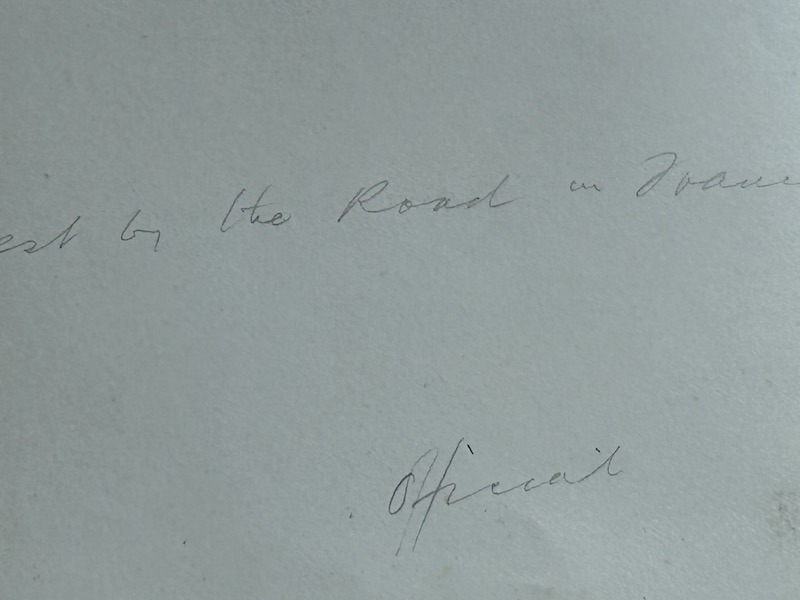 est by the Road in Franc
Official